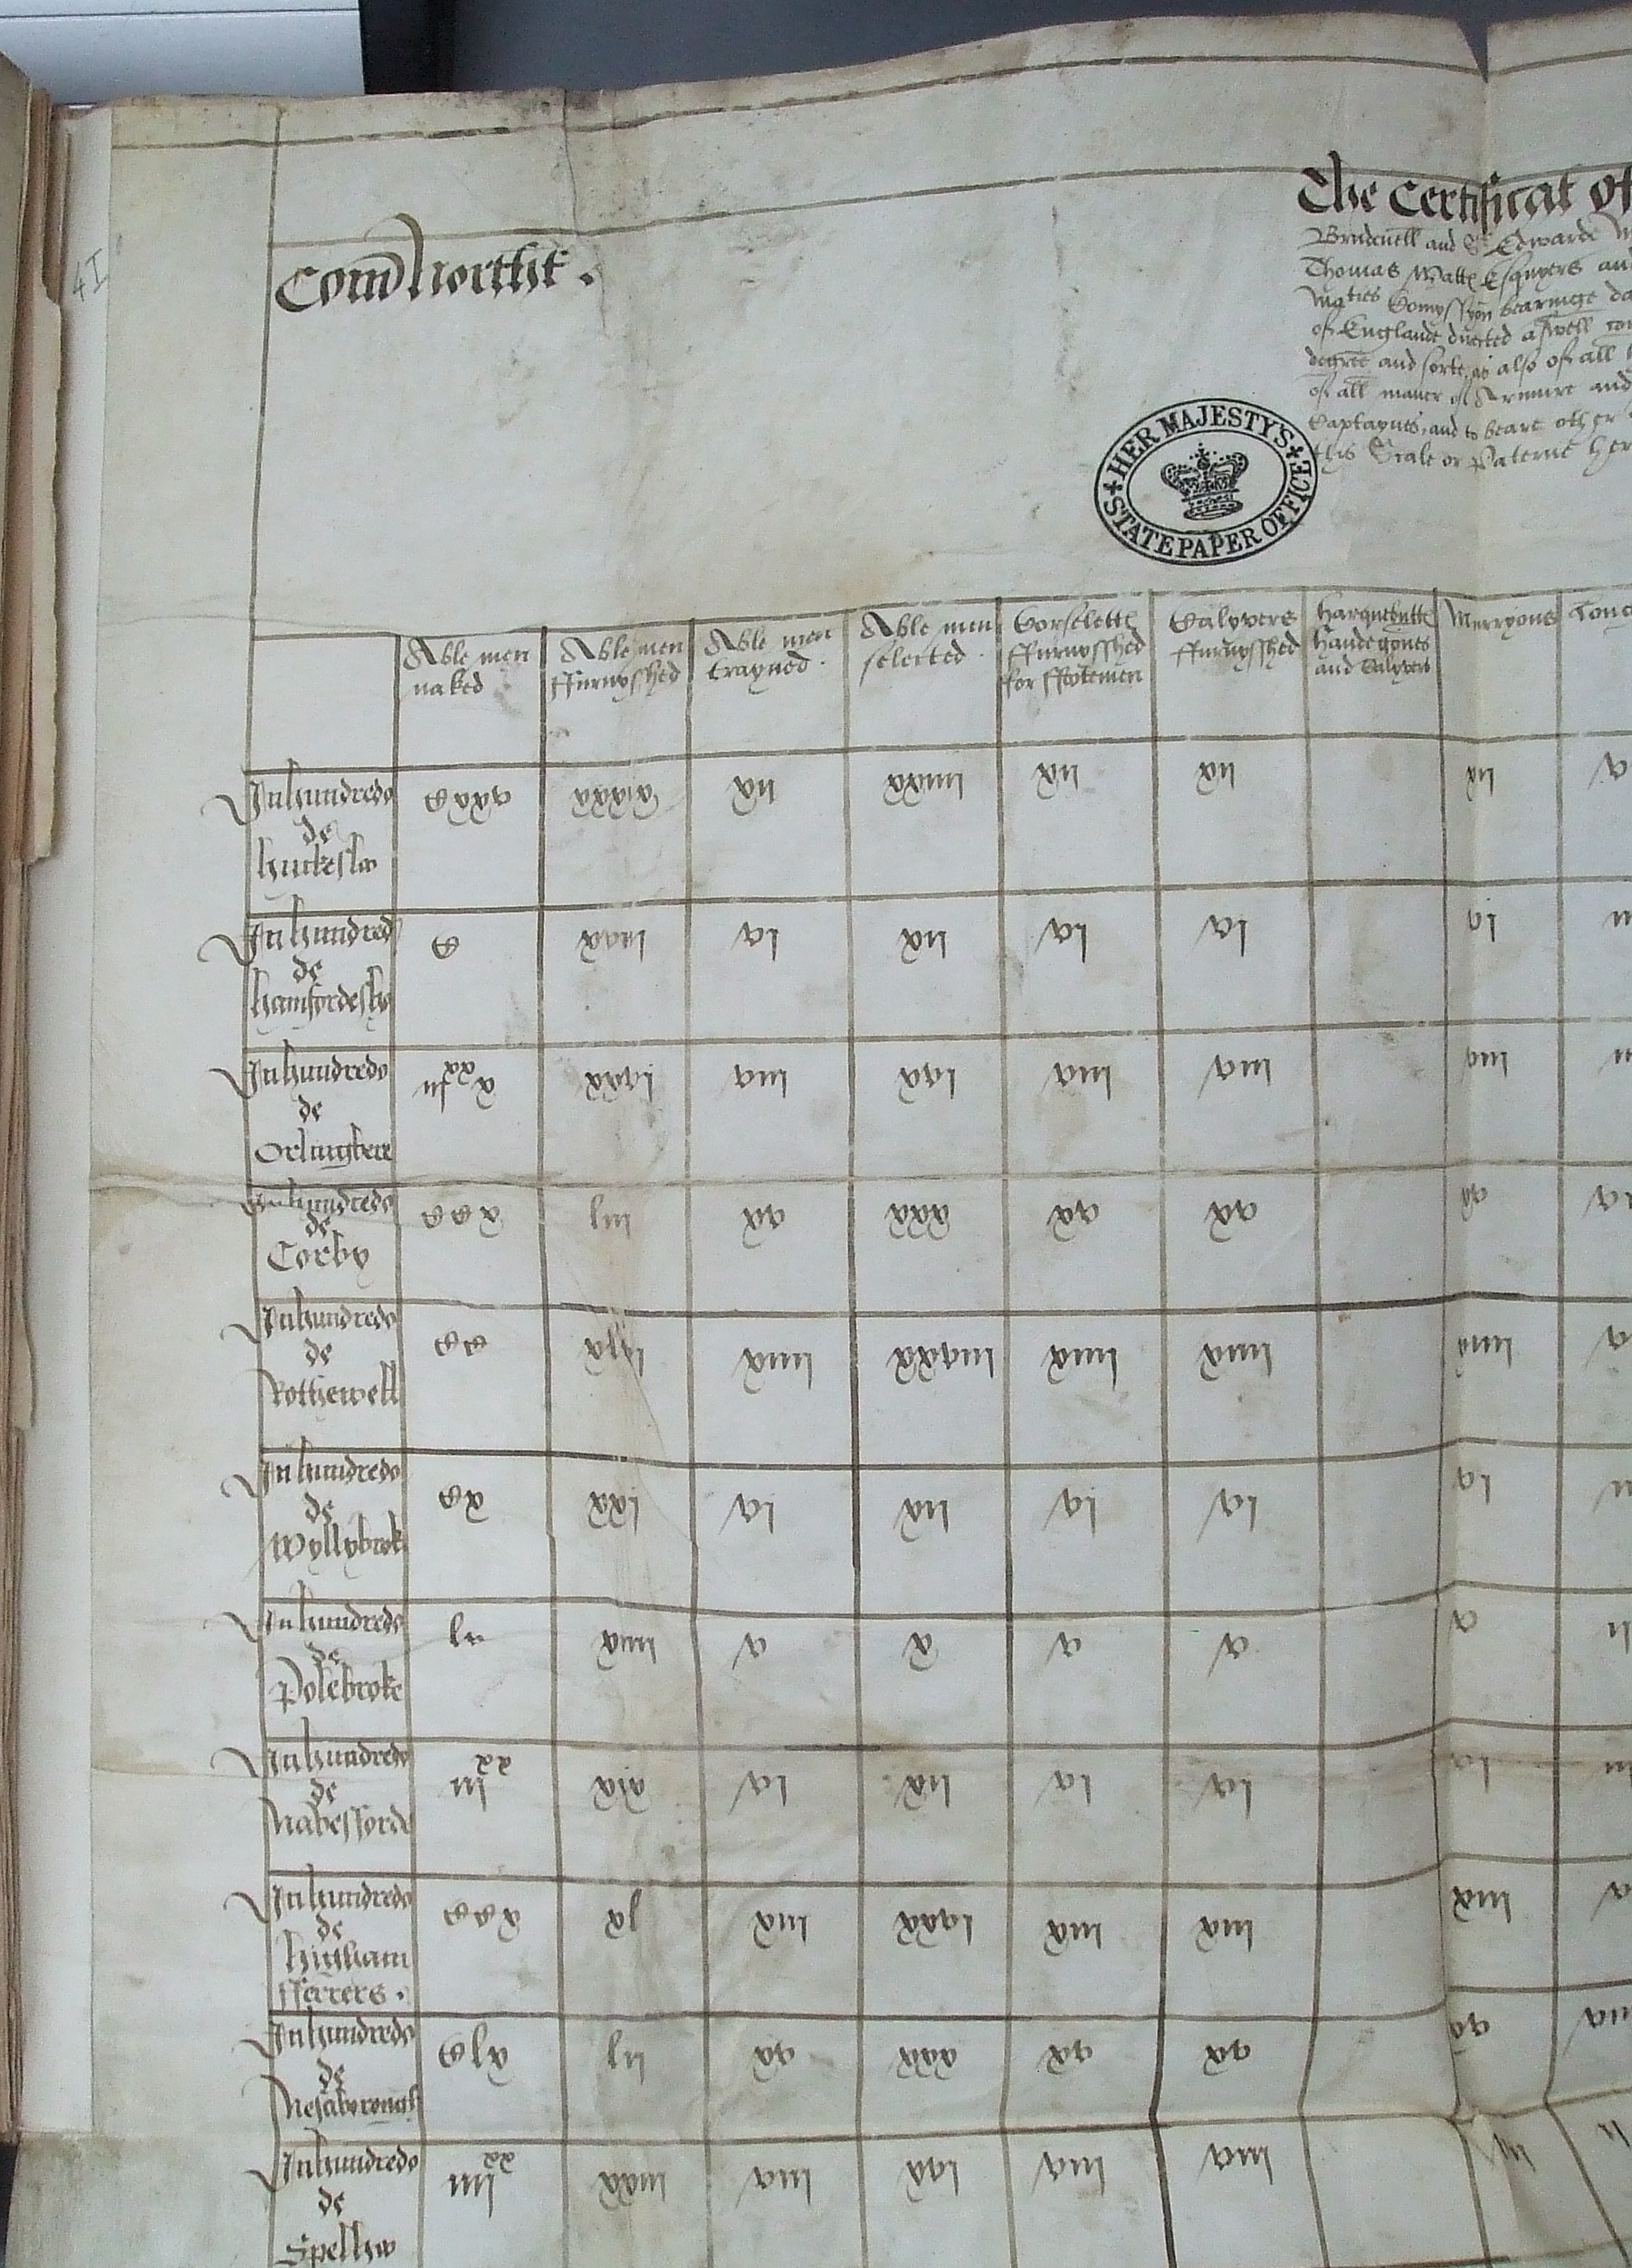 4I
Com Northt.
The Certificat of
Brudenell and Sr Edwarde
Thomas Watts Esquyers and
maties Comyssyon bearinge da
of Englande directed aswell con
degree and sorte, as also of all
of all maner of Armure and
Captaynes, and to beare other
this Scale or Paterne her
HER MAJESTY'S
STATE PAPER OFFICE
Able men naked
Able men ffurnysshed
Able men trayned.
Able men selected.
Corseletts ffurnysshed for ffotemen
Calyvers ffurnysshed
Harquebutts Handegones and Calyvers
Murryons
In hundredo de Huckeslo
cxxv
xxxix
xii
xxiiii
xii
xii
xii
In hundred de Hamfordesho
c
xviii
vi
xii
vi
vi
vi
In hundredo de Orlingbere
xxvi
viii
xvi
viii
viii
viii
In hundredo de Corby
ccx
liii
xv
xxx
xv
xv
xv
In hundredo de Rothewell
cc
xiiii
xxviii
xiiii
xiiii
xiiii
In hundredo de Wyllybrok
cx
xxi
vi
xii
vi
vi
vi
In hundredo de Polebroke
lii
xiiii
v
x
v
v
v
In hundredo de Nabefforde
iii xx
xix
vi
xii
vi
vi
vi
In hundredo de Higham fferrers.
ccx
xl
xiii
xxvi
xiii
xiii
xiii
In hundredo de Nesaborough
clx
lii
xv
xxx
xv
xv
xv
In hundredo de Spelho
iiii xx
xxiii
viii
xvi
viii
viii